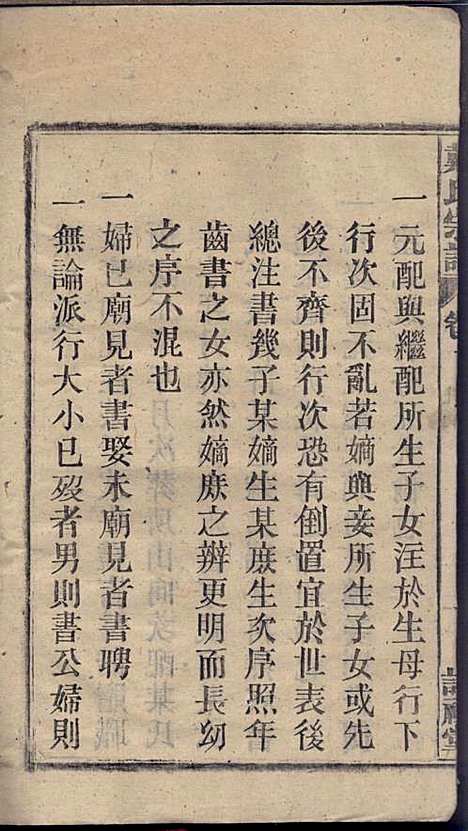 一元配與繼配所生子女注於生母行下
行次固不亂若嫡與妾所生子女或先
後不齊則行次恐有倒置宜於世表後
總注書幾子某嫡生某庶生次序照年
齒書之女亦然嫡庶之辨更明而長幼
之序不混也
一婦已廟見者書娶未廟見者書聘
一無論派行大小已歿者男則書公婦則